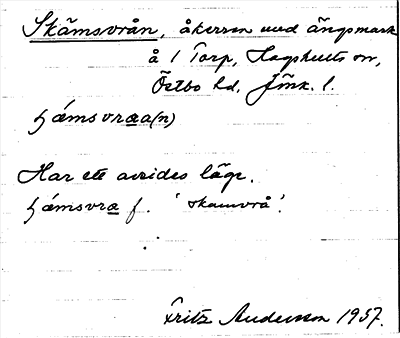 Skämsvrån, åkerren med ängsmark
å 1 Torp, Hagshults sn,
Östbo hd, Jönk. l.
hämsvraa(n)
Har ett avsides läge.
hämsvra f. 'skamvrå'.
Fritz Anderson 1937.